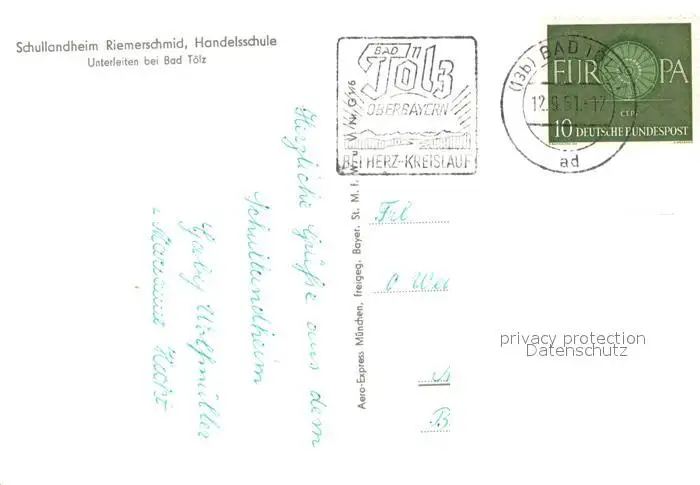 Schullandheim Riemerschmid, Handelsschule
Unterleiten bei Bad Tölz
BAD
Tölz
OBERBAYERN
BEI HERZ-KREISLAUF
(13b) BAD TÖLZ
12.9.61.-17
ad
EUROPA
CEPT
10 DEUTSCHE BUNDESPOST
Herzliche Grüße aus dem
Schullandheim
Gaby Wolfmüller
Aero-Express München, freigeg. Bayer. St. M. f. W. u. V. Nr. G 5/6
Frl
privacy protection
Datenschutz